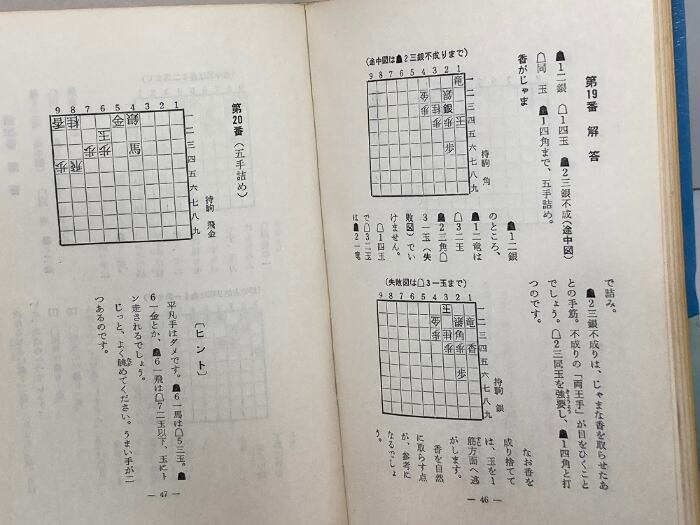 第19番 解答
☗1二銀 ☖1四玉 ☗2三銀不成(途中図)
☖同 玉 ☗1四角まで、五手詰め。
香がじゃま
(途中図は☗2三銀不成りまで)
9 8 7 6 5 4 3 2 1
一二三四五六七八九
持駒 角
☗1二銀
のところ、
☗1二竜は
☖3二玉
☗2三角☖
3一玉(失
敗図)でい
けません。
☖1四玉
で☖3二玉
は☗2一竜
で詰み。
☗2三銀不成りは、じゃまな香を取らせたあ
との手筋。不成りの「両王手」が目をひくこと
でしょう。☖2三同玉を強要し、☗1四角と打
つのです。
(失敗図は☖3一玉まで)
9 8 7 6 5 4 3 2 1
一二三四五六七八九
持駒 銀
なお香を
成り捨てて
は、玉を1
筋方面へ逃
がします。
香を自然
に取らす点
が、参考に
なるでしょ
う。
— 46 —
第20番(五手詰め)
9 8 7 6 5 4 3 2 1
一二三四五六七八九
持駒 飛金
〔ヒント〕
平凡手はダメです。☗6一馬は☖5三玉。☗
6一金とか、☗6一飛は☖7二玉以下、玉にト
ン走されるでしょう。
じっと、よく眺めてください。うまい手が二
つあるのです。
— 47 —